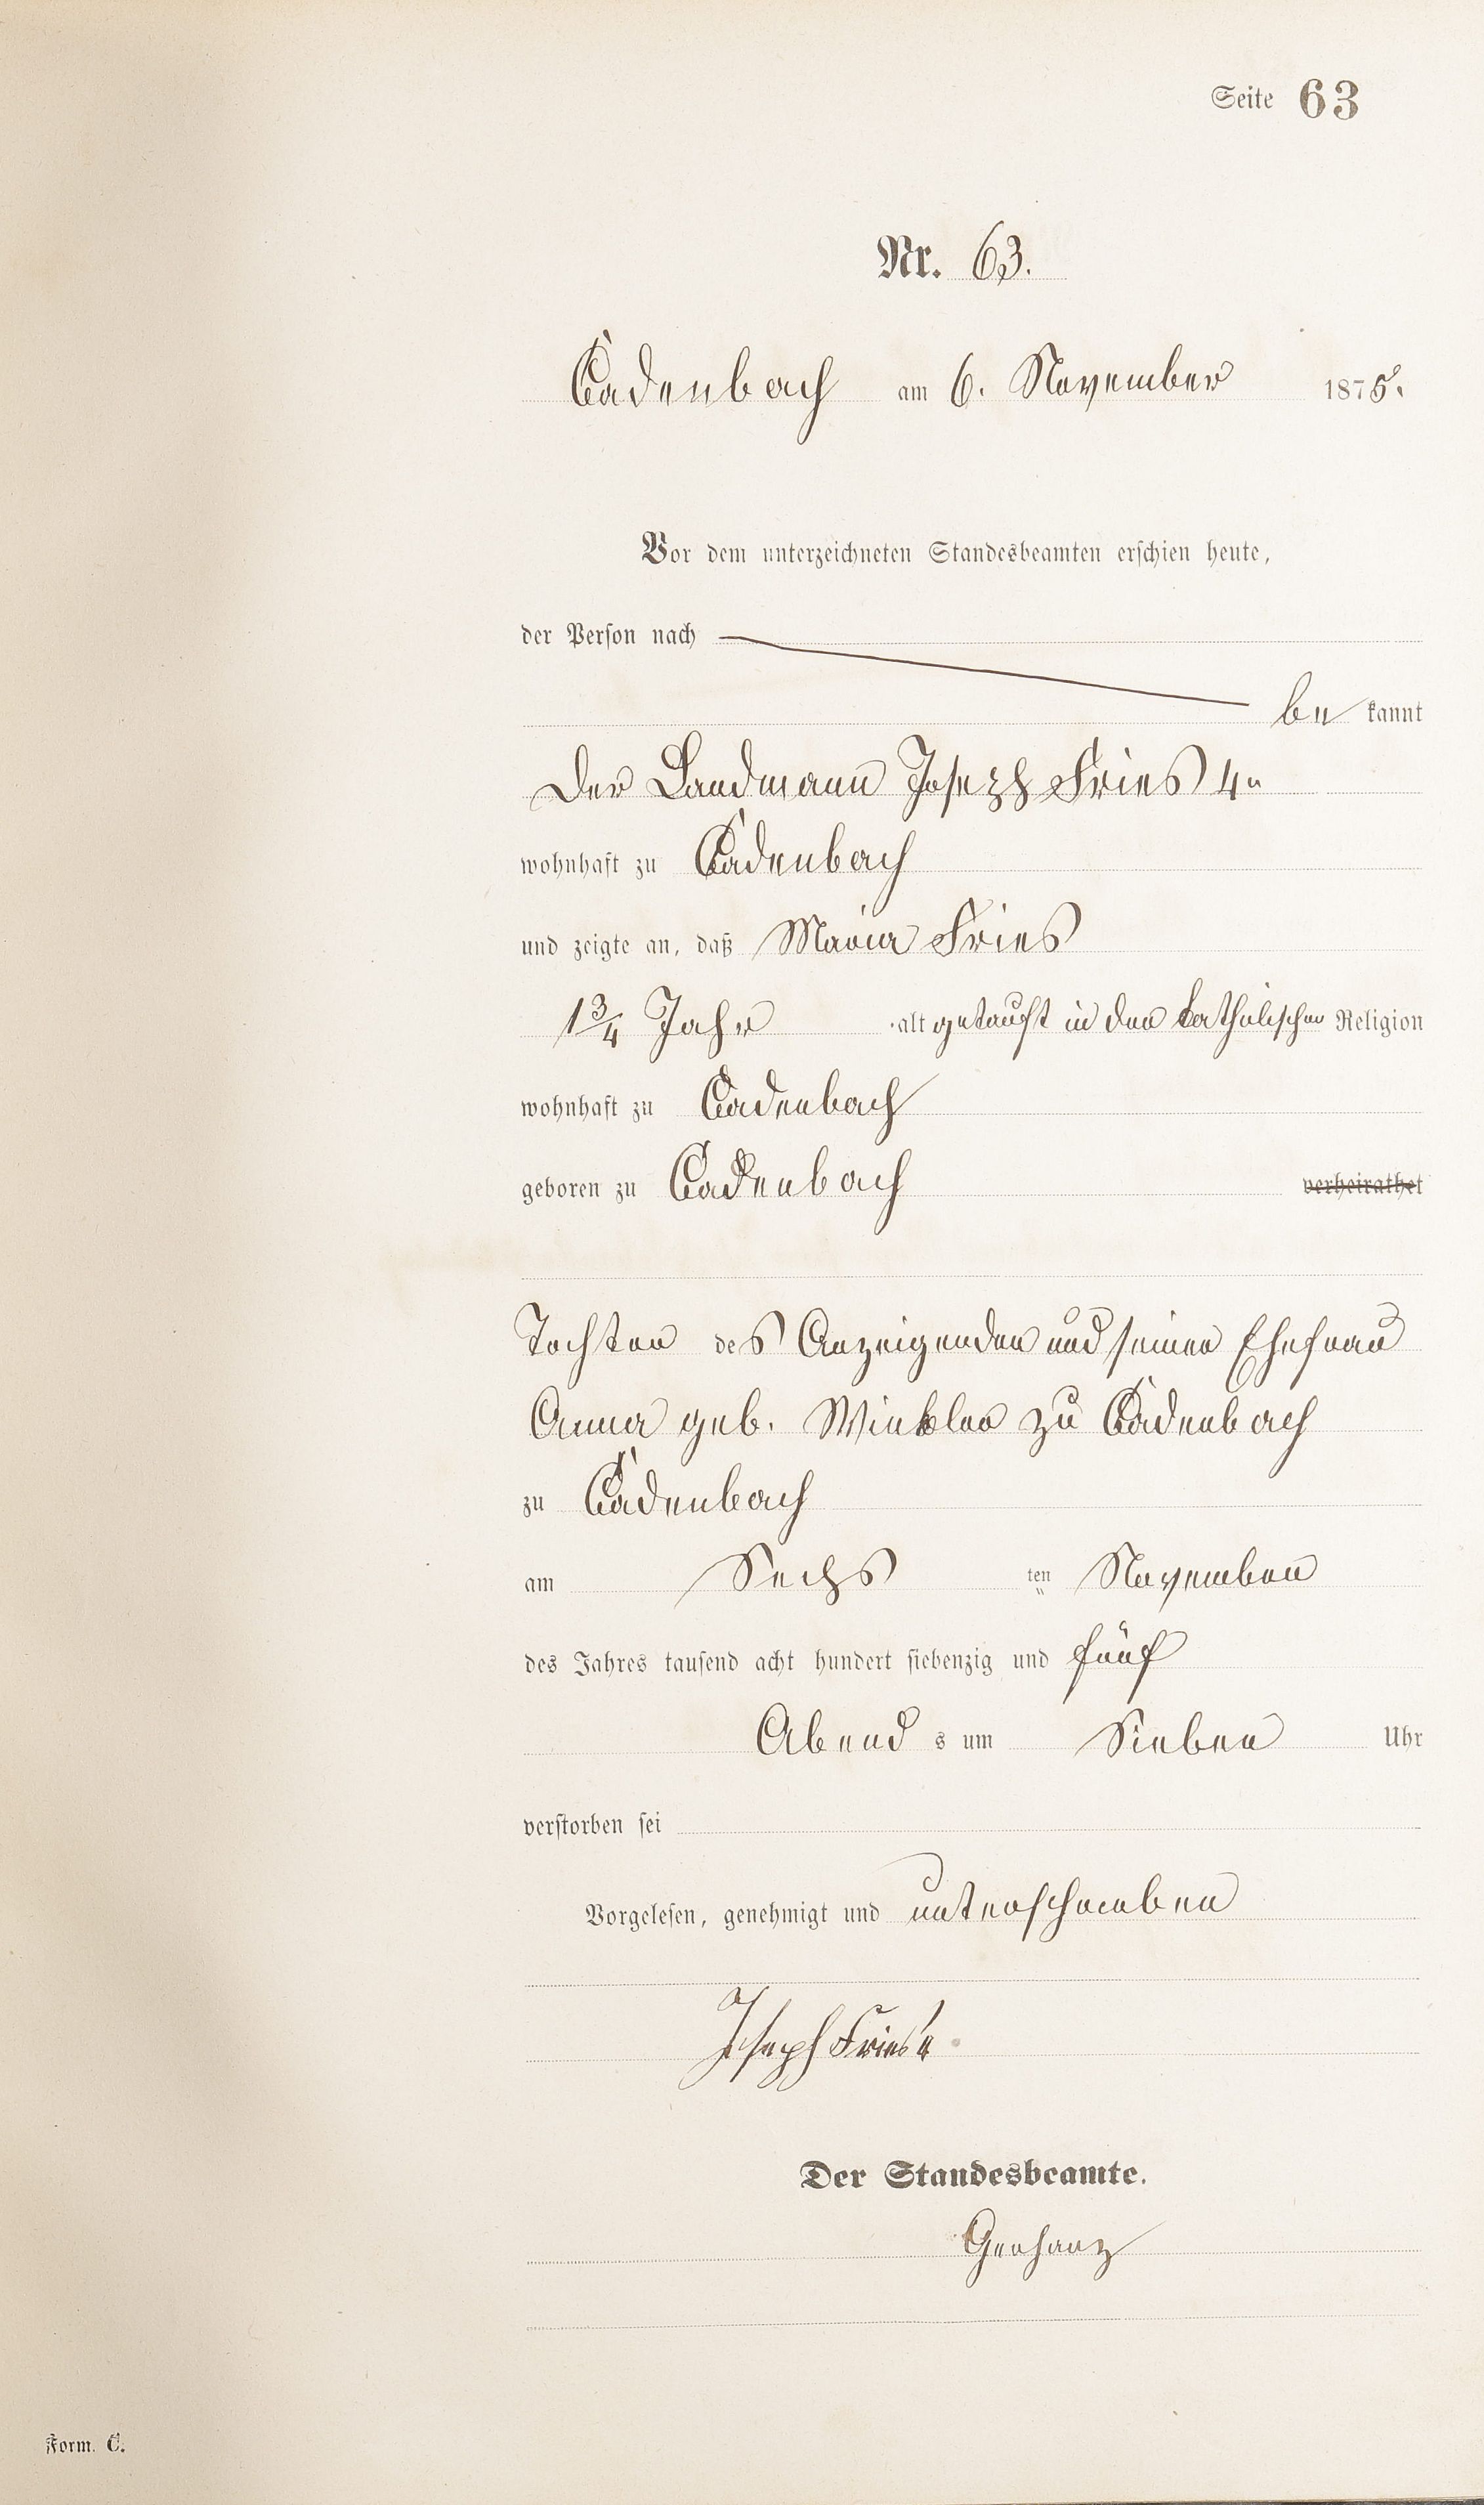 Seite 63
Nr. 63.
Cadenbach am 6. November 1875.
Vor dem unterzeichneten Standesbeamten erschien heute,
der Person nach
be kannt
der Landmann Joseph Fries 4r
wohnhaft zu Cadenbach
und zeigte an, daß Maria Fries
1 3/4 Jahr alt getauft in der katholischen Religion
wohnhaft zu Cadenbach
geboren zu Cadenbach verheirathet
Tochter des Anzeigenden und seiner Ehefrau
Anna geb. Winkler zu Cadenbach
zu Cadenbach
am Sechs ten November
des Jahres tausend acht hundert siebenzig und fünf
Abend s um Sieben Uhr
verstorben sei
Vorgelesen, genehmigt und unterschrieben
Joseph Fries
Der Standesbeamte.
Gerhanz
Form. C.